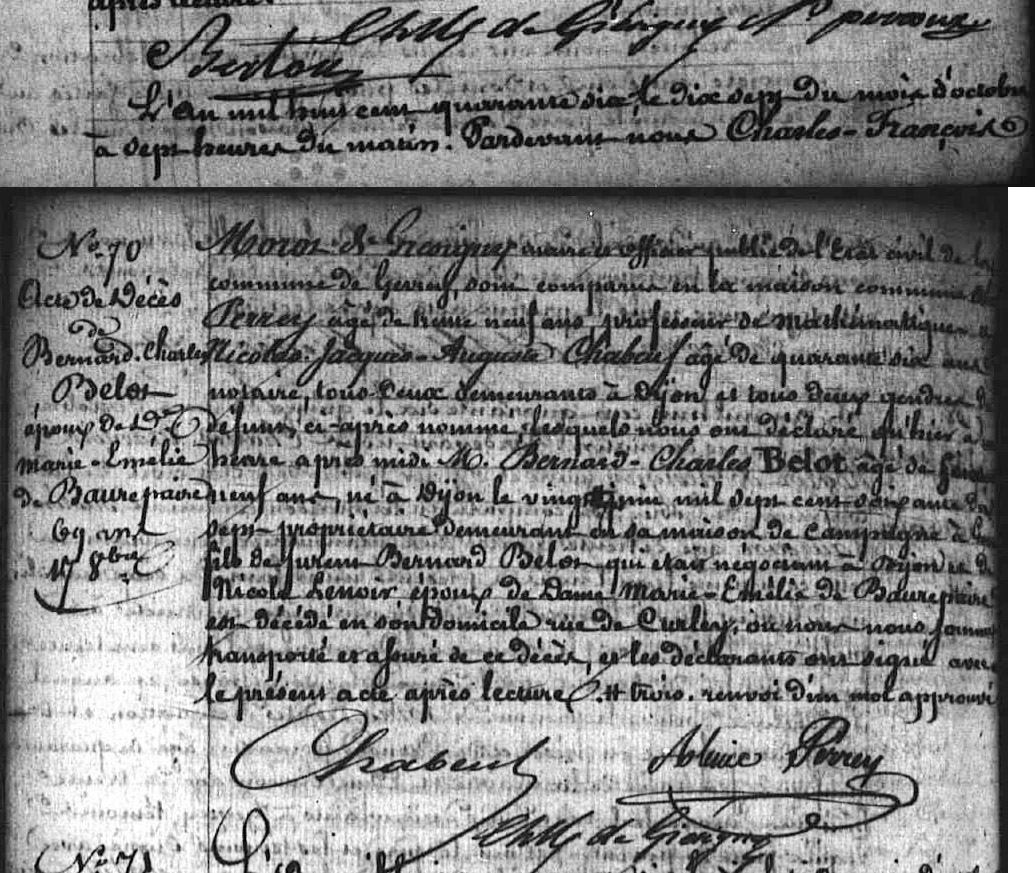 après lecture.
Ch M de Gevigny N. perroux
Bertoux
L'An mil huit cent quarante six le dix sept du mois d'octobre
à sept heures du matin. Pardevant nous Charles-François
No. 70
Acte de Décès
de
Bernard-Charles
Belot
époux de De
Marie-Emélie
de Baurepaire
69 ans
17 8bre
maire et officier public de l'Etat civil de la
commune de Gevrey, sont comparus en la maison commune
Perrey âgé de trente neuf ans, professeur de mathématiques
Nicolas-Jacques-Auguste Chabeuf âgé de quarante six ans
notaire, tous deux demeurants à Dijon et tous deux gendres du
défunt, ci-après nommé, lesquels nous ont déclaré qu'hier à
heure après midi M. Bernard-Charles Belot âgé de
neuf ans, né à Dijon le vingt juin mil sept cent soixante dix
sept propriétaire demeurant en sa maison de Campagne à
fils de furent Bernard Belot qui était négociant à Dijon et de
Nicole Lenoir, époux de Dame Marie-Emélie de Baurepaire
est décédé en son domicile rue de Curley, où nous nous sommes
transporté et assuré de ce décès, et les déclarants ont signé avec
le présent acte après lecture. # trois. renvoi d'un mot approuvé
Chabeuf
Alexis Perrey
Ch M de Gevigny
No. 71